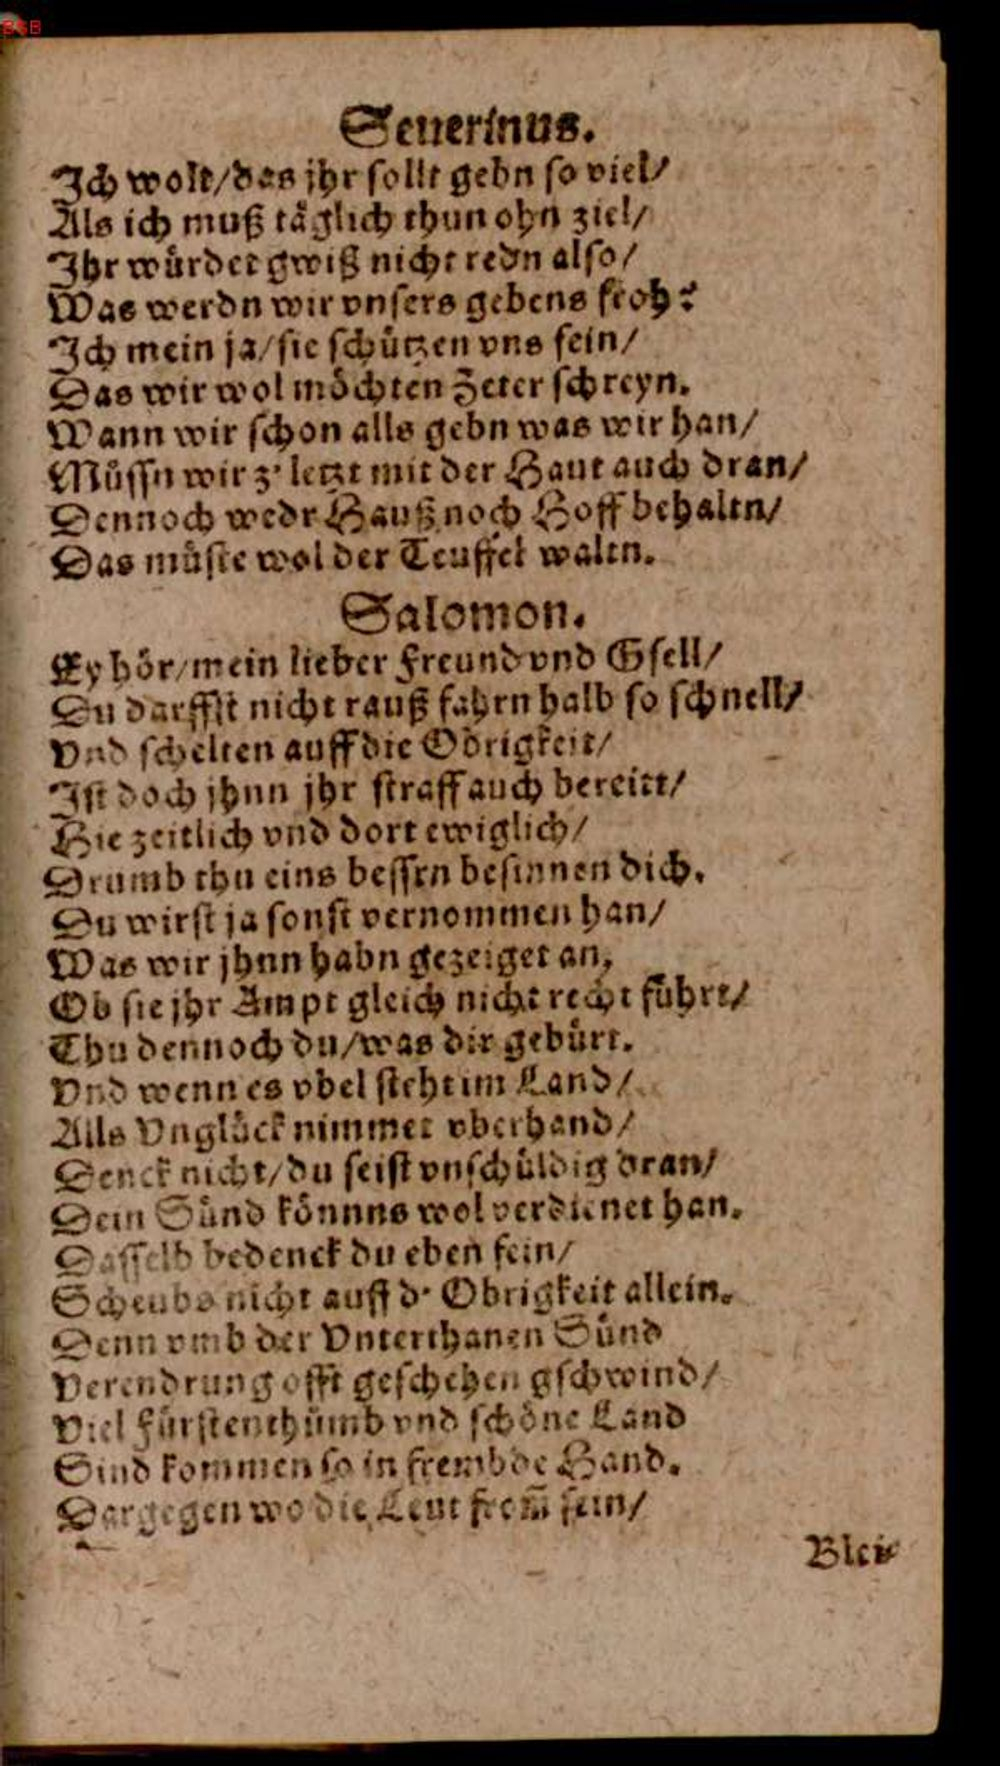 BSB
Seuerinus.
Ich wolt/das jhr sollt gebn so viel/
Als ich muß täglich thun ohn ziel/
Ihr würdet gwiß nicht redn also/
Was werdn wir vnsers gebens froh?
Ich mein ja/sie schützen vns fein/
Das wir wol möchten Zeter schreyn.
Wann wir schon alls gebn was wir han/
Müssn wir z' letzt mit der Haut auch dran/
Dennoch wedr Hauß noch Hoff behaltn/
Das müste wol der Teuffel waltn.
Salomon.
Ey hör/mein lieber Freund vnd Gsell/
Du darffst nicht rauß fahrn halb so schnell/
Vnd schelten auff die Obrigkeit/
Ist doch jhnn jhr straff auch bereitt/
Hie zeitlich vnd dort ewiglich/
Drumb thu eins bessrn besinnen dich.
Du wirst ja sonst vernommen han/
Was wir jhnn habn gezeiget an,
Ob sie jhr Ampt gleich nicht recht führt/
Thu dennoch du/was dir gebürt.
Vnd wenn es vbel steht im Land/
Alls Vnglück nimmet vberhand/
Denck nicht/du seist vnschüldig dran/
Dein Sünd könnns wol verdienet han.
Dasselb bedenck du eben fein/
Scheubs nicht auff d' Obrigkeit allein.
Denn vmb der Vnterthanen Sünd
Verendrung offt geschehen gschwind/
Viel Fürstenthümb vnd schöne Land
Sind kommen so in frembde Hand.
Dargegen wo die Leut from̃ sein/
Blei-